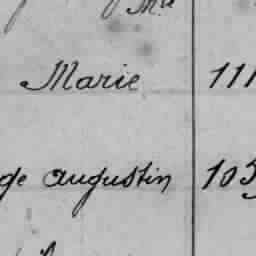 Marie 111
ge augustin 105